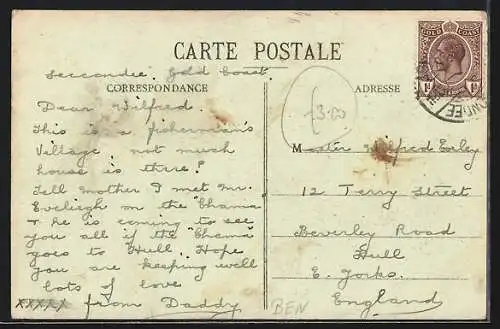 CARTE POSTALE
Seccondee. Gold Coast.
CORRESPONDANCE
ADRESSE
Dear Wilfred.
This is a fisherman's
Village not much
house is there?
Tell Mother I met Mr.
Eveliegh on the "Chama"
& he is coming to see
you all if the "Chama"
goes to Hull. Hope
you are keeping well
lots of love
xxxxx from Daddy
£3.00
Master Wilfred Exley
12 Terry Street
Beverley Road
Hull
E. Yorks.
England
BEN
GOLD COAST
1D 1D
ONDEE